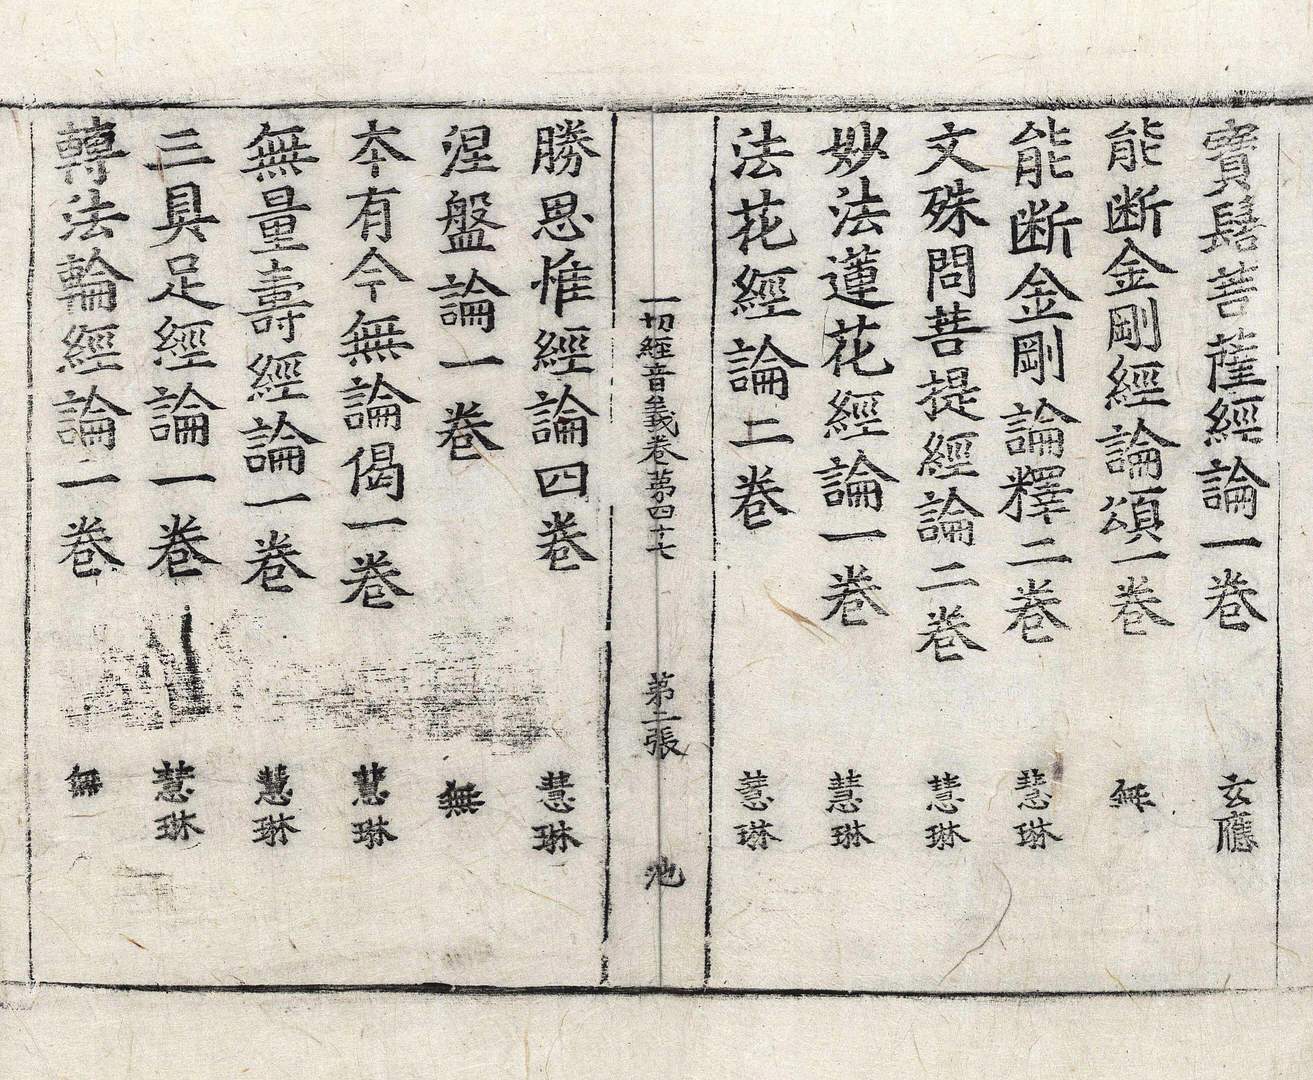 寶髻菩薩經論一卷 玄應
能断金剛經論頌一卷 無
能断金剛論釋二卷 慧琳
文殊問菩提經論二卷 慧琳
妙法蓮花經論一卷 慧琳
法花經論二卷 慧琳
一切經音義卷苐四十七 苐二張 池
勝思惟經論四卷 慧琳
涅盤論一卷 無
本有今無論偈一卷 慧琳
無量壽經論一卷 慧琳
三具足經論一卷 慧琳
轉法輪經論一卷 無